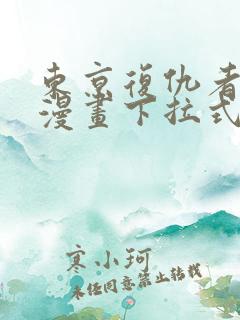 東京復仇者
漫畫下拉式
寒小珂
未经同意禁止转载